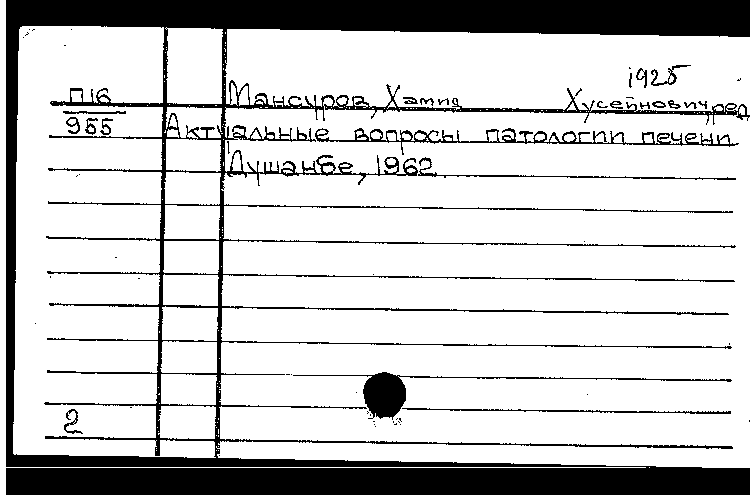 1925
П16 Мансуров, Хамид Хусейнович, ред.
955 Актуальные вопросы патологии печени
Душанбе, 1962
2